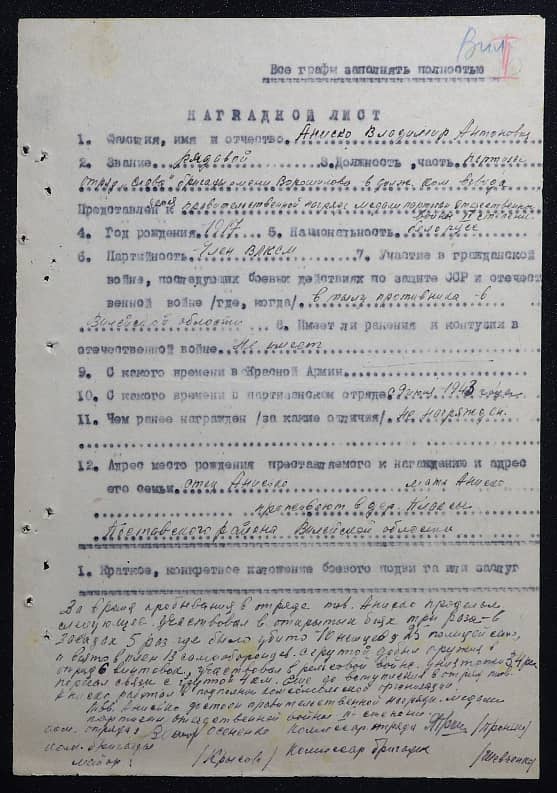 Вил
Все графы заполнять полностью
НАГРАДНОЙ ЛИСТ
1. Фамилия, имя и отчество. Аниско Владимир Антонович
2. Звание. Рядовой 3. Должность, часть. партизан
отряд "Слава" бригады имени Ворошилова в долж. ком. взвода
Представлен к правительственной награде медаль партизан отечественной
войны II степени
4. Год рождения. 1917 5. Национальность. белорус
6. Партийность. Член ВЛКСМ 7. Участие в гражданской
войне, последующих боевых действиях по защите ССР и отечест
венной войне /где, когда/. в тылу противника в
Вилейской области 8. Имеет ли ранения и контузии в
отечественной войне. Не имеет
9. С какого времени в Красной Армии
10. С какого времени в партизанском отряде 1943 года
11. Чем ранее награжден /за какие отличия/. Не награжден.
12. Адрес место рождения преставляемого к нагаждению и адрес
его семьи. отец Аниско мать Аниско
проживают в дер.
Поставского района Вилейской области
1. Краткое, конкретное изложение боевого подвига или заслуг
За время пребывания в отряде тов. Аниско проделал
следующее. Участвовал в открытых боях три раза в
засадах 5 раз где было убито 10 немцев
и взято в плен 13 самооборонцев. добыл оружия в
отряд 6 винтовок, участвовал в рельсовой войне. уничтожил
порвал связи 4 км. Еще до вступления в отряд тов.
Аниско работал в подпольн комсомольской организации.
Тов. Аниско достоин правительственной награды медали
партизан отечественной войны II степени.
ком. отряда Осененко Комиссар отряда /Пронин/
ком. бригады
майор: /Крысов/ Комиссар бригады /Шевченко/